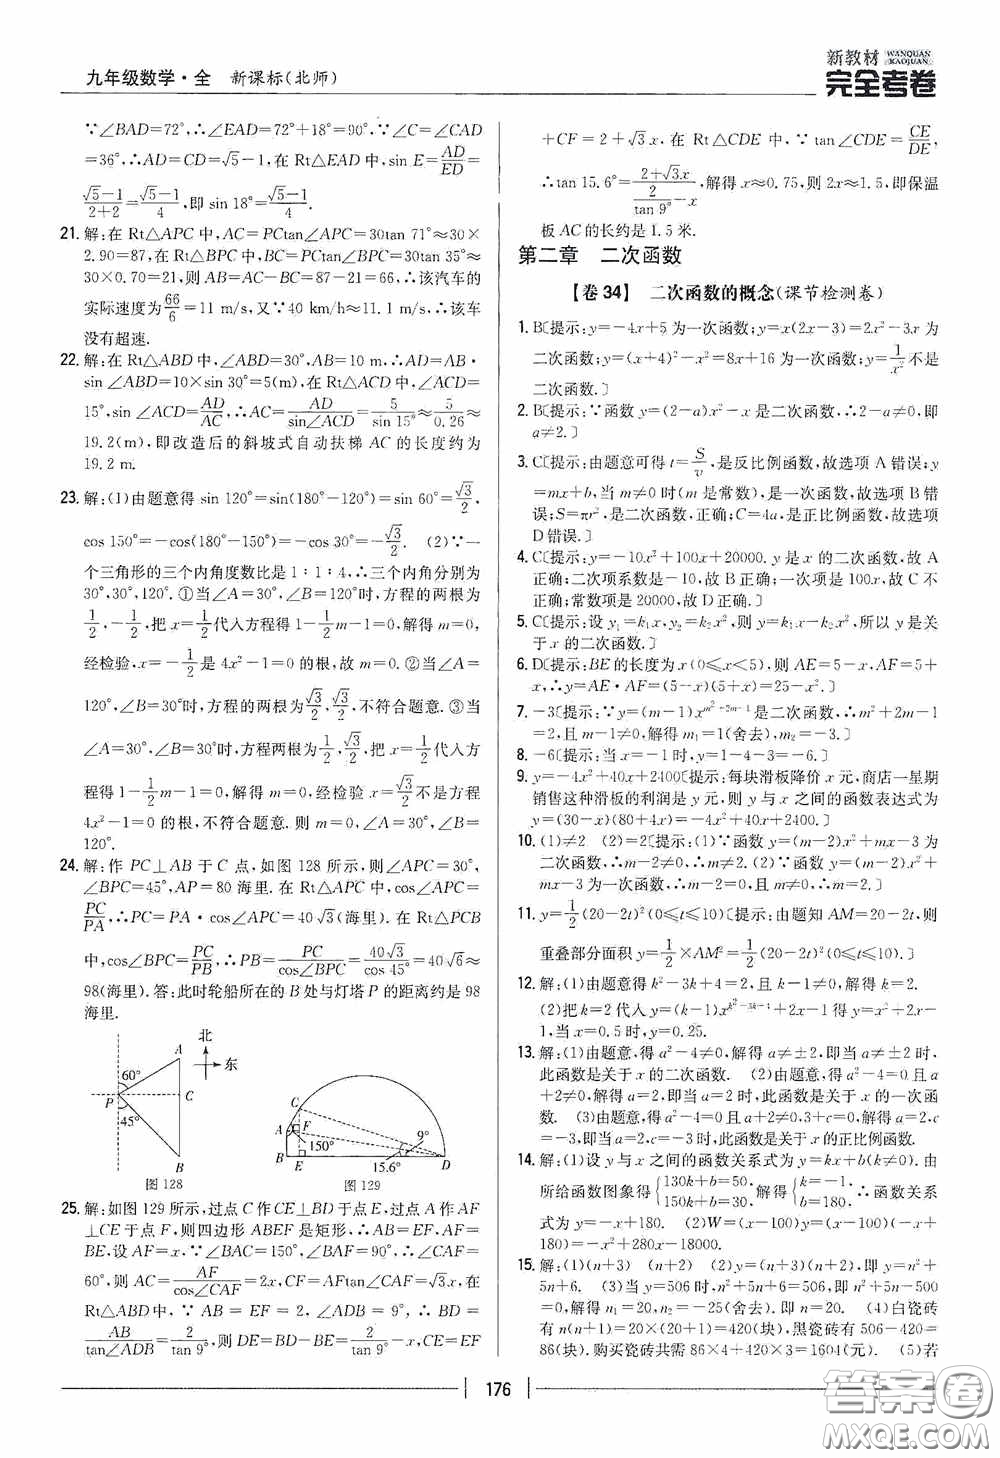 九年级数学·全 新课标(北师)
新教材 WANQUAN KAOJUAN
完全考卷
∵∠BAD=72°,∴∠EAD=72°+18°=90°.∵∠C=∠CAD
=36°,∴AD=CD=√5-1,在 Rt△EAD 中,sin E=AD/ED=
(√5-1)/(2+2)=(√5-1)/4,即 sin 18°=(√5-1)/4.
21. 解:在 Rt△APC 中,AC=PCtan∠APC=30tan 71°≈30×
2.90=87,在 Rt△BPC 中,BC=PCtan∠BPC=30tan 35°≈
30×0.70=21,则 AB=AC-BC=87-21=66,∴该汽车的
速度为66/6=11 m/s,又∵40 km/h≈11.1 m/s,∴该车
没有超速.
22. 解:在 Rt△ABD 中,∠ABD=30°,AB=10 m,∴AD=AB·
sin ∠ABD=10×sin 30°=5(m),在 Rt△ACD 中,∠ACD=
15°,sin ∠ACD=AD/AC,∴AC=AD/sin∠ACD=5/sin 15°≈5/0.26≈
19.2(m),即改造后的斜坡式自动扶梯 AC 的长度约为
19.2 m.
23. 解:(1)由题意得 sin 120°=sin(180°-120°)=sin 60°=√3/2,
cos 150°=-cos(180°-150°)=-cos 30°=-√3/2. (2)∵一
个三角形的三个内角度数比是 1:1:4,∴三个内角分别为
30°,30°,120°.①当∠A=30°,∠B=120°时,方程的两根为
1/2,-1/2,把 x=1/2代入方程得 1-1/2m-1=0,解得 m=0,
经检验,x=-1/2是 4x²-1=0 的根,故 m=0.②当∠A=
120°,∠B=30°时,方程的两根为√3/2,√3/2,不符合题意.③当
∠A=30°,∠B=30°时,方程两根为1/2,√3/2,把 x=1/2代入方
程得 1-1/2m-1=0,解得 m=0,经检验 x=√3/2不是方程
4x²-1=0 的根,不符合题意.则 m=0,∠A=30°,∠B=
120°.
24. 解:作 PC⊥AB 于 C 点,如图 128 所示,则∠APC=30°,
∠BPC=45°,AP=80 海里.在 Rt△APC 中,cos∠APC=
PC/PA,∴PC=PA·cos∠APC=40√3(海里).在 Rt△PCB
中,cos∠BPC=PC/PB,∴PB=PC/cos∠BPC=40√3/cos 45°=40√6≈
98(海里).答:此时轮船所在的 B 处与灯塔 P 的距离约是 98
海里.
北
东
A
60°
P
C
45°
B
图 128
C
A
F
150°
9°
B
E
15.6°
D
图 129
25. 解:如图 129 所示,过点 C 作 CE⊥BD 于点 E,过点 A 作 AF
⊥CE 于点 F,则四边形 ABEF 是矩形,∴AB=EF,AF=
BE,设 AF=x,∵∠BAC=150°,∠BAF=90°,∴∠CAF=
60°,则 AC=AF/cos∠CAF=2x,CF=AFtan∠CAF=√3x,在
Rt△ABD中,∵ AB = EF = 2,∠ADB = 9°,∴ BD =
AB/tan∠ADB=2/tan 9°,则 DE=BD-BE=2/tan 9°-x,CE=EF
+CF=2+√3x.在 Rt△CDE 中,∵tan∠CDE=CE/DE,
∴tan 15.6°=(2+√3x)/(2/tan 9°-x),解得 x≈0.75,则 2x≈1.5,即保温
板 AC 的长约是 1.5 米.
第二章 二次函数
【卷 34】 二次函数的概念(课节检测卷)
1. B〔提示:y=-4x+5 为一次函数;y=x(2x-3)=2x²-3x 为
二次函数;y=(x+4)²-x²=8x+16 为一次函数;y=1/x²不是
二次函数.〕
2. B〔提示:∵函数 y=(2-a)x²-x 是二次函数,∴2-a≠0,即
a≠2.〕
3. C〔提示:由题意可得 t=S/v,是反比例函数,故选项 A 错误;y
=mx+b,当 m≠0 时(m 是常数),是一次函数,故选项 B 错
误;S=πr²,是二次函数,正确;C=4a,是正比例函数,故选项
D 错误.〕
4. C〔提示:y=-10x²+100x+20000.y 是 x 的二次函数,故 A
正确;二次项系数是-10,故 B 正确;一次项是 100x,故 C 不
正确;常数项是 20000,故 D 正确.〕
5. C〔提示:设 y₁=k₁x,y₂=k₂x,则 y=k₁k₂x²,所以 y 是关
于 x 的二次函数.〕
6. D〔提示:BE 的长度为 x(0≤x<5),则 AE=5-x,AF=5+
x,∴y=AE·AF=(5-x)(5+x)=25-x².〕
7. -3〔提示:∵y=(m-1)x^(m²+2m-1)是二次函数,∴m²+2m-1
=2,且 m-1≠0,解得 m₁=1(舍去),m₂=-3.〕
8. -6〔提示:当 x=-1 时,y=1-4-3=-6.〕
9. y=-4x²+40x+2400〔提示:每块滑板降价 x 元,商店一星期
销售这种滑板的利润是 y 元,则 y 与 x 之间的函数表达式为
y=(30-x)(80+4x)=-4x²+40x+2400.〕
10. (1)≠2 (2)=2〔提示:(1)∵函数 y=(m-2)x²+mx-3 为
二次函数,∴m-2≠0,∴m≠2.(2)∵函数 y=(m-2)x²+
mx-3 为一次函数,∴m-2=0,m≠0,∴m=2.〕
11. y=1/2(20-2t)²(0≤t≤10)〔提示:由题知 AM=20-2t,则
重叠部分面积 y=1/2×AM²=1/2(20-2t)²(0≤t≤10).〕
12. 解:(1)由题意得 k²-3k+4=2,且 k-1≠0,解得 k=2.
(2)把 k=2 代入 y=(k-1)x^(k²-3k+4)+2x-1 得 y=x²+2x-
1,当 x=0.5 时,y=0.25.
13. 解:(1)由题意,得 a²-4≠0,解得 a≠±2,即当 a≠±2 时,
此函数是关于 x 的二次函数. (2)由题意,得 a²-4=0 且 a
+2≠0,解得 a=2,即当 a=2 时,此函数是关于 x 的一次函
数. (3)由题意,得 a²-4=0 且 a+2≠0,3+c=0,解得 a=2,c
=-3,即当 a=2,c=-3 时,此函数是关于 x 的正比例函数.
14. 解:(1)设 y 与 x 之间的函数关系式为 y=kx+b(k≠0).由
所给函数图象得{130k+b=50, 150k+b=30.解得{k=-1, b=180.∴函数关系
式为 y=-x+180. (2)W=(x-100)y=(x-100)(-x+
180)=-x²+280x-18000.
15. 解:(1)(n+3) (n+2) (2)y=(n+3)(n+2),即 y=n²+
5n+6. (3)当 y=506 时,n²+5n+6=506,即 n²+5n-500
=0,解得 n₁=20,n₂=-25(舍去),即 n=20. (4)白瓷砖
有 n(n+1)=20×(20+1)=420(块),黑瓷砖有 506-420=
86(块).购买瓷砖共需 86×4+420×3=1604(元). (5)若
176
答案卷